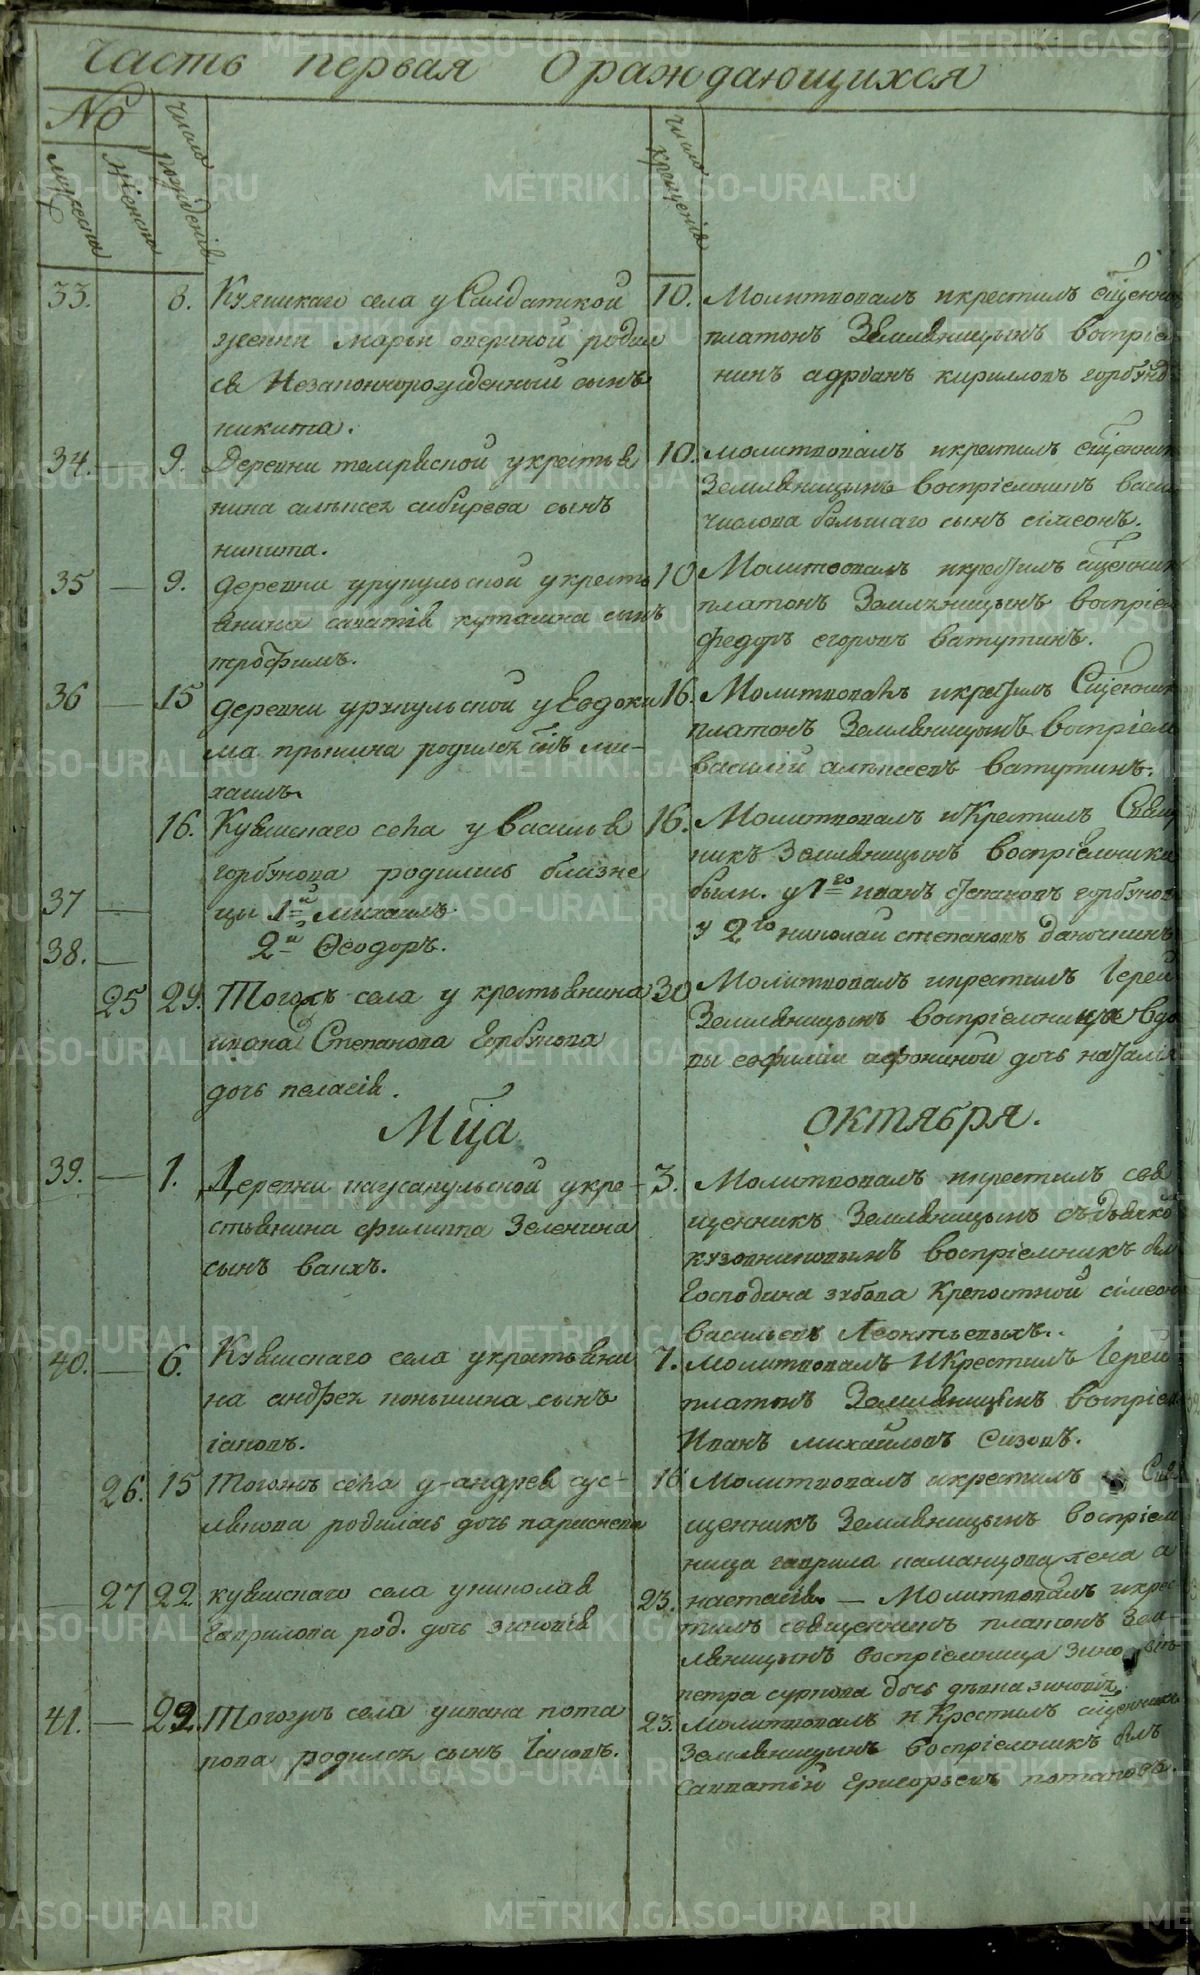 Часть первая О раждающихся
№
мужеска
женска
число рожденiя
число крещенiя
33. 8. Куяшскаго села у Салдатской
женки Марьи родил
ся Незаконнорожденный сынъ
никита.
10. Молитвовалъ и крестилъ сщенни
платонъ Земляницынъ воспрiем
никъ адрiанъ кириловъ горбуно
34. — 9. Деревни у крестья
нина алексея сибирева сынъ
никита.
10. молитвовалъ и крестилъ сщенник
Земляницынъ воспрiемникъ васил
числова большаго сынъ сiмеонъ.
35 — 9. деревни урукульской у кресть
янина саватiя кутакина сынъ
трофимъ.
10 Молитвовалъ и крестилъ сщенник
платонъ Земляницынъ воспрiем
федоръ егоровъ ватутинъ.
36 — 15 деревни урукульской у Евдоки
ма пряхина родился снъ ми-
хаилъ
16. Молитвовалъ и крестилъ Сщенник
платонъ Земляницынъ воспрiем
василiй алексеевъ ватутинъ.
16. Куяшскаго села у василья
горбунова родились близне
37 — цы 1й михаилъ
38. — 2й Ѳеодоръ.
16. Молитвовалъ и Крестилъ Свящ
никъ Земляницынъ воспрiемники
были. у 1го иванъ степановъ горбунов
у 2го николай степановъ
25 29. Тогожъ села у крестьянина
ивана Степанова Горбунова
дочь пелагiя.
30 Молитвовалъ и крестилъ Iерей
Земляницынъ воспрiемница вдо
вы евфимiи афониной дочь наталiя
Мца октября.
39. — 1. Деревни у кре-
стьянина филиппа Зеленина
сынъ
3. Молитвовалъ и крестилъ свя
щенникъ Земляницынъ съ дьячко
кузовниковымъ воспрiемникъ был
Господина зубова Крепостной сiмеон
васильевъ Леонтьевыхъ.
40. — 6. Куяшскаго села у крестьяни
на андрея коньшина сынъ
iаковъ.
7. Молитвовалъ и Крестилъ Iерей
платонъ Земляницынъ воспрiем
Иванъ михайловъ Сизовъ.
26. 15 Тогожъ села у андрея сус-
лянова родилась дочь параскева
16 Молитвовалъ и крестилъ Свя
щенникъ Земляницынъ воспрiем
ница гаврила жена а
настасiя.
27 22 куяшскаго села у николая
Гаврилова род. дочь зиновiя
23. — Молитвовалъ и крес
тилъ священникъ платонъ Зем-
ляницынъ воспрiемница
петра суркова дочь девка зиновiя.
41. — 22. Тогожъ села у ивана пота
пова родился сынъ Iаковъ.
23. Молитвовалъ и Крестилъ сщенникъ
Земляницынъ воспрiемникъ былъ
Савватiй Григорьевъ потаповъ.
METRIKI.GASO-URAL.RU